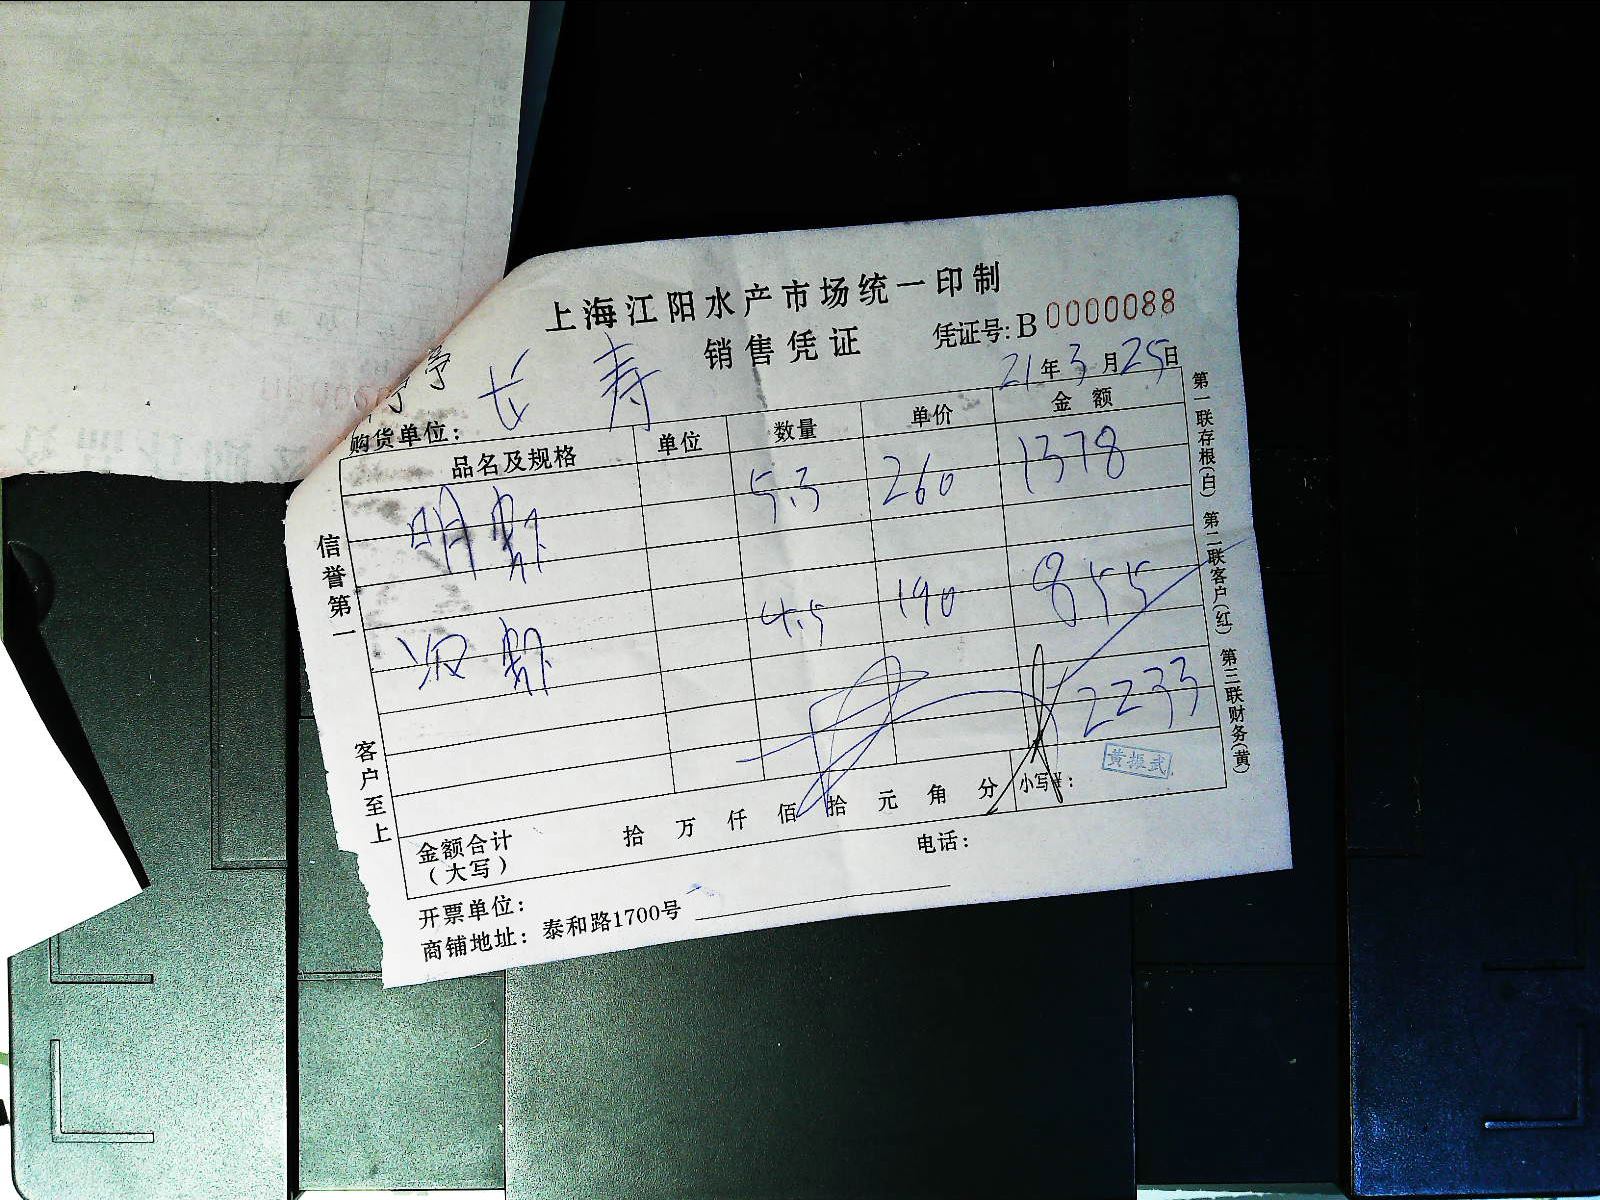 上海江阳水产市场统一印制
销售凭证
凭证号: B 0000088
21年3月25日
购货单位： 长寿
品名及规格 单位 数量 单价 金额
明 5.3 260 1378
4.5 190 855
2233
金额合计（大写） 拾 万 仟 佰 拾 元 角 分 小写¥：
黄振武
开票单位： 电话：
商铺地址： 泰和路1700号
信誉第一 客户至上
第一联存根(白) 第二联客户(红) 第三联财务(黄)